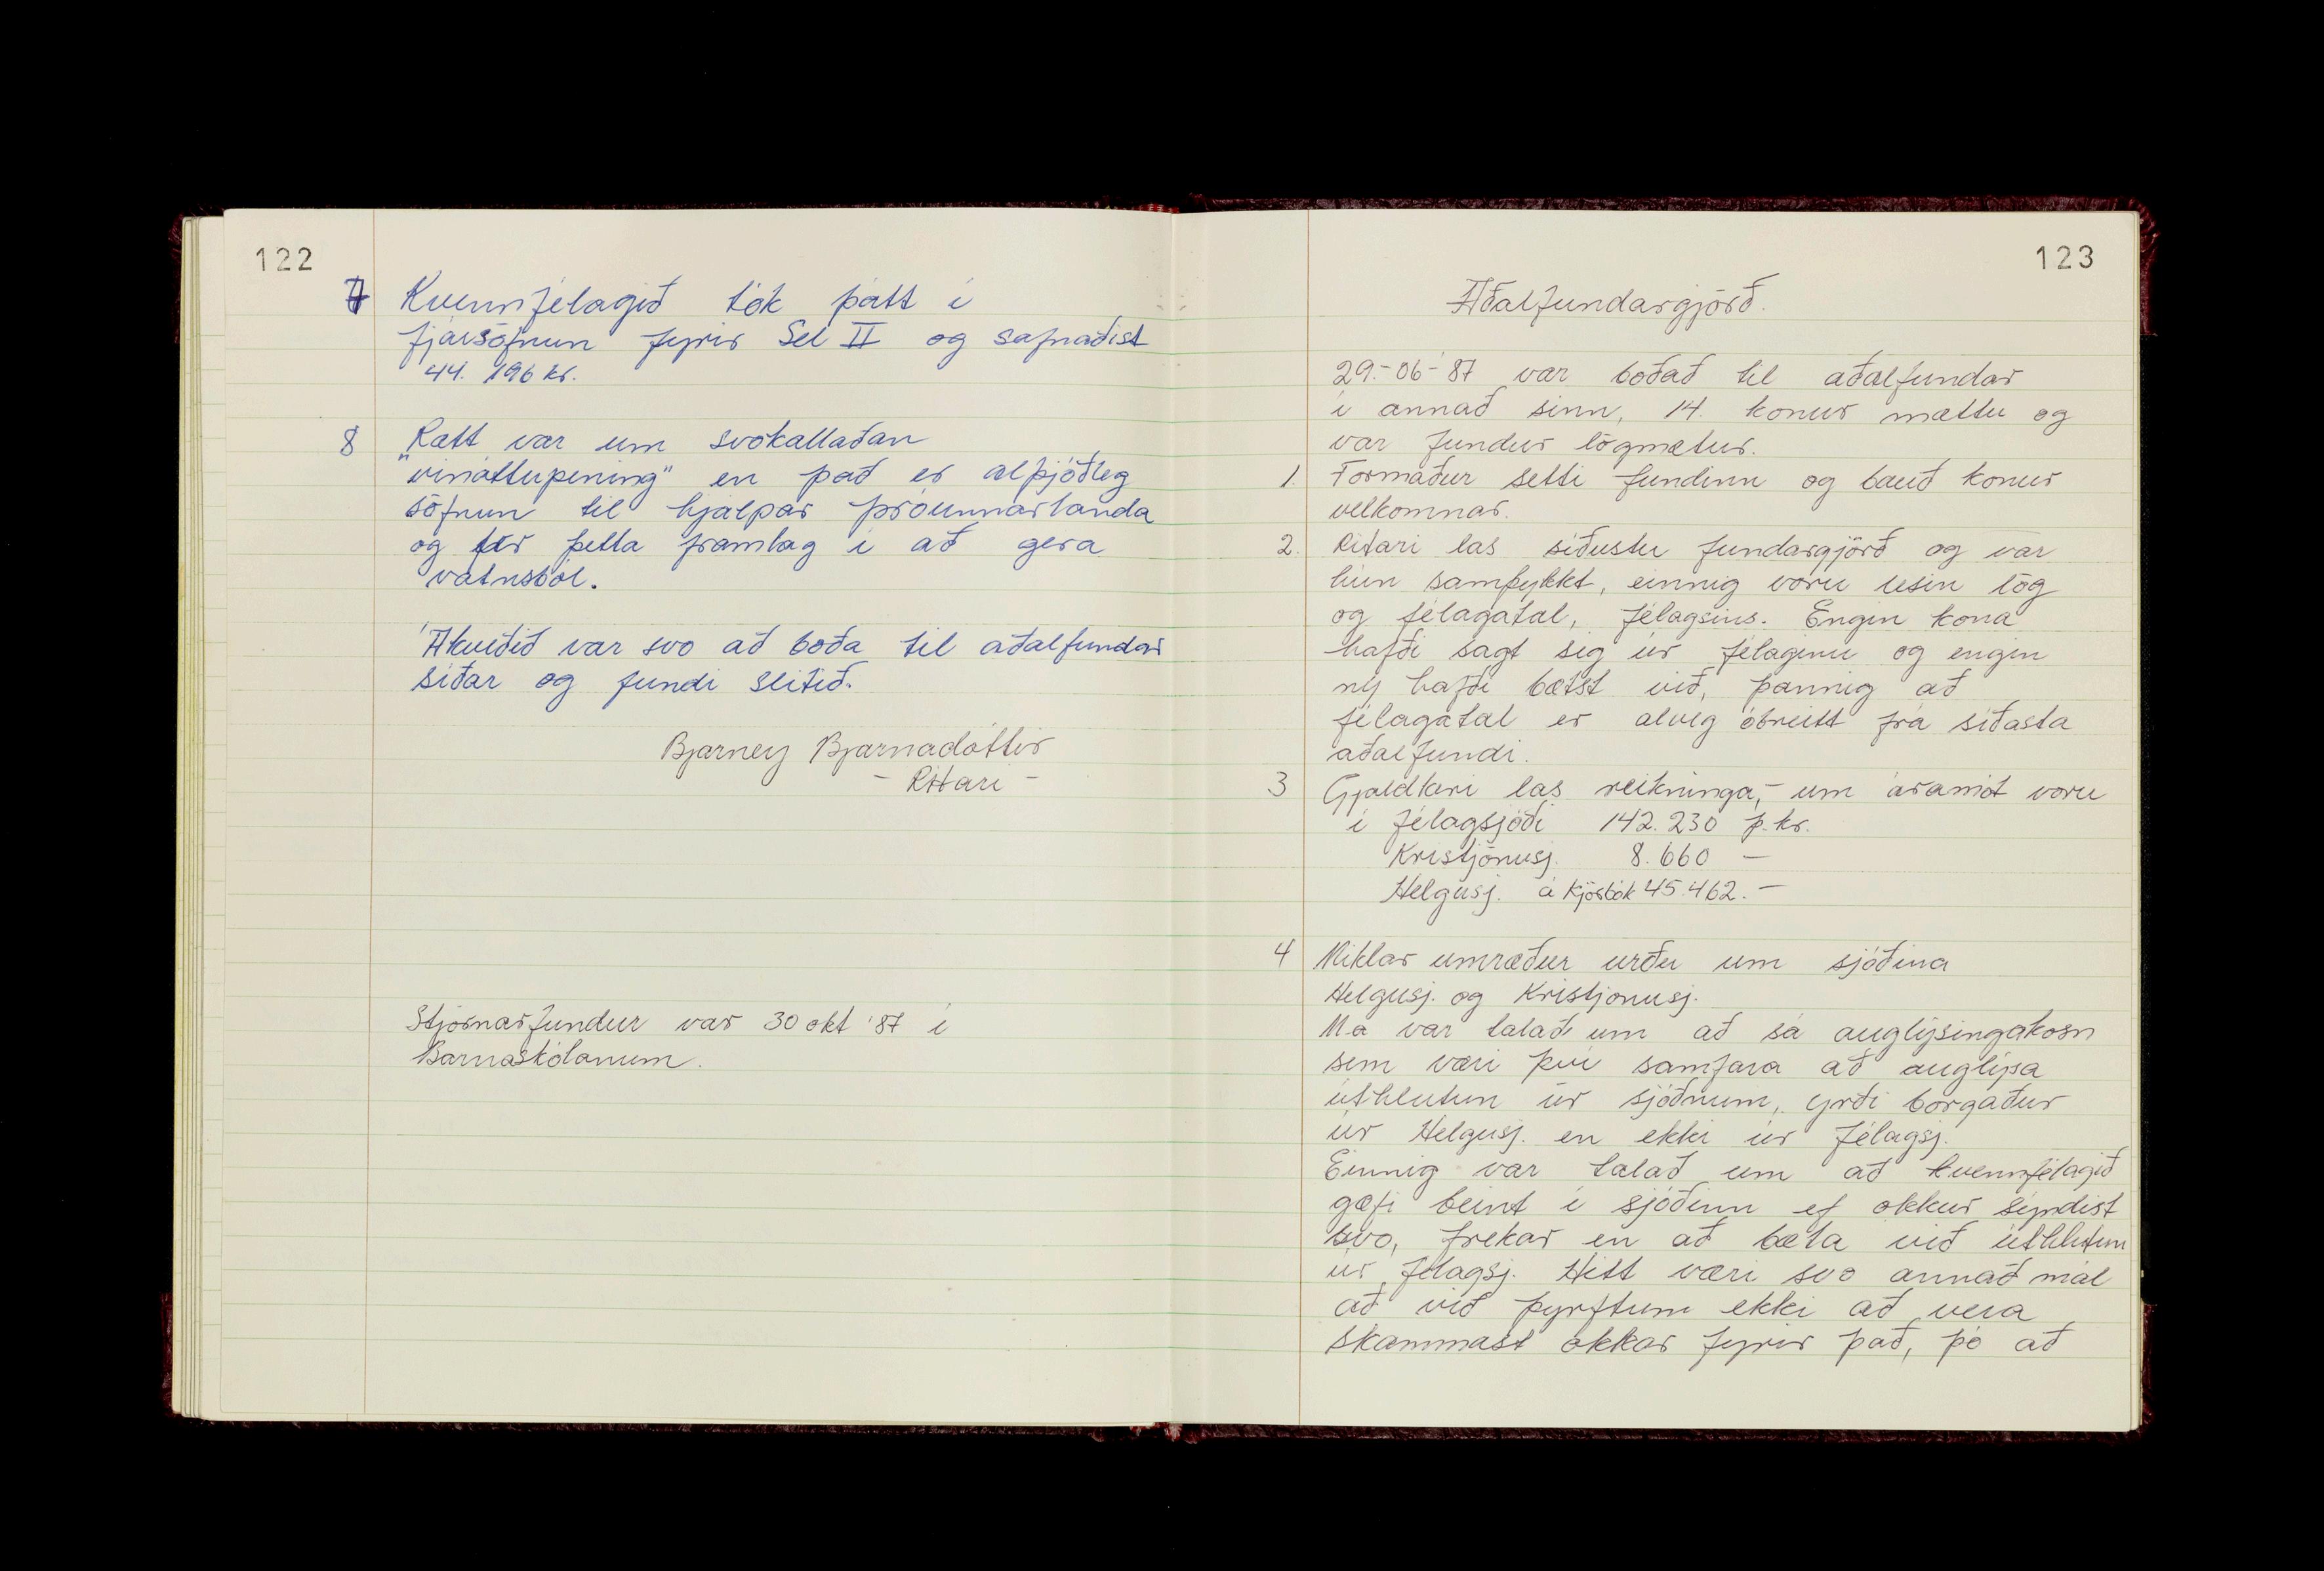 122
7 Kvennfélagið tók þátt í
fjársöfnun fyrir Sel II og safnaðist
44.196 kr.
8 Rætt var um svokallaðan
"vináttupening" en það er alþjóðleg
söfnun til hjálpar þróunnarlanda
og fer þetta framlag í að gera
vatnsból.
Ákveðið var svo að boða til aðalfundar
síðar og fundi slitið.
Bjarney Bjarnadóttir
- Ritari -
Stjórnarfundur var 30 okt '87 í
Barnaskólanum.
123
Aðalfundargjörð.
29.-06-'87 var boðað til aðalfundar
í annað sinn, 14. konur mættu og
var fundur lögmætur.
1. Formaður setti fundinn og bauð konur
velkomnar.
2. Ritari las síðustu fundargjörð og var
hún samþykkt, einnig voru lesin lög
og félagatal, félagsins. Engin kona
hafði sagt sig úr félaginu og engin
ný hafði bætst við, þannig að
félagatal er alveg óbreitt frá síðasta
aðalfundi.
3 Gjaldkeri las reikninga,- um áramót voru
í félagsjóði 142.230 þ.kr.
Kristjönusj. 8.660 —
Helgusj. á Kjörbók 45.462.—
4 Miklar umræður urðu um sjóðina
Helgusj. og Kristjonusj.
M.a var talað um að sá auglýsingakosn
sem væri því samfara að auglýsa
úthlutun úr sjóðnum, yrði borgaður
úr Helgusj. en ekki úr félagsj.
Einnig var talað um að kvennfélagið
gæfi beint í sjóðinn ef okkur sýndist
svo, frekar en að bæta við úthlutun
úr félagsj. Hitt væri svo annað mál
að við þyrftum ekki að vera
skammast okkar fyrir það, þó að